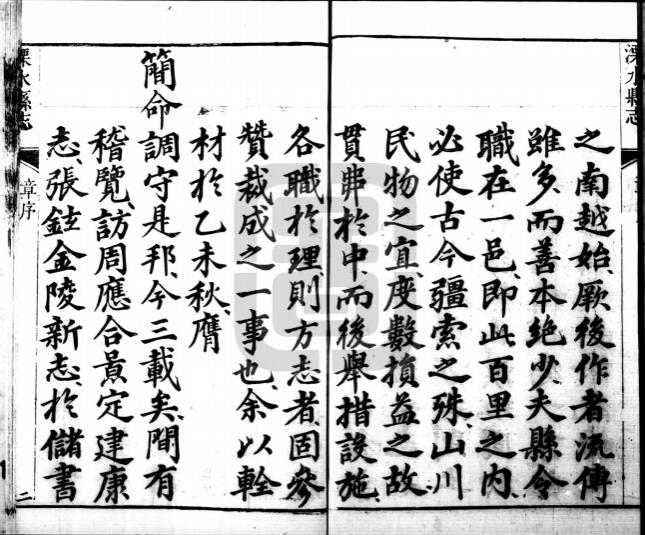 溧水縣志
之南越始厥後作者流傳
雖多而善本絶少夫縣令
職在一邑即此百里之内
必使古今疆索之殊山川
民物之宜度數損益之故
貫弗於中而後舉措設施
各職於理則方志者固參
贊裁成之一事也余以輇
材於乙未秋膺
簡命調守是邦今三載矣間有
稽覽訪周應合景定建康
志張鉉金陵新志於儲書
溧水縣志
章序
二